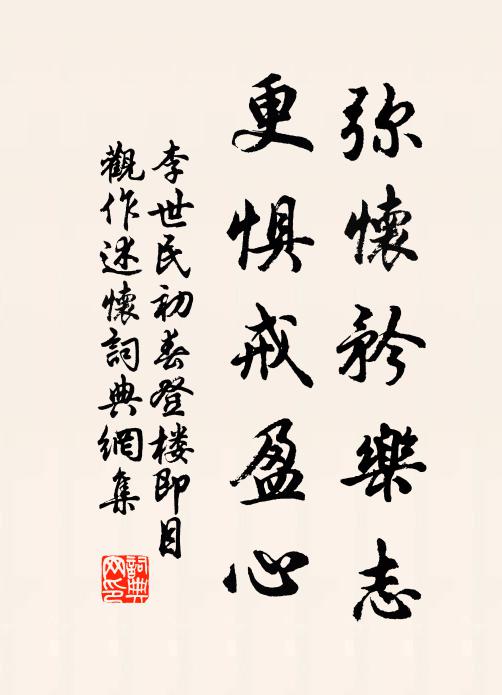 弥懷矜樂志
更惧戒盈心
李世民初春登楼即目
觀作述懷詞典網集
詞典
网印